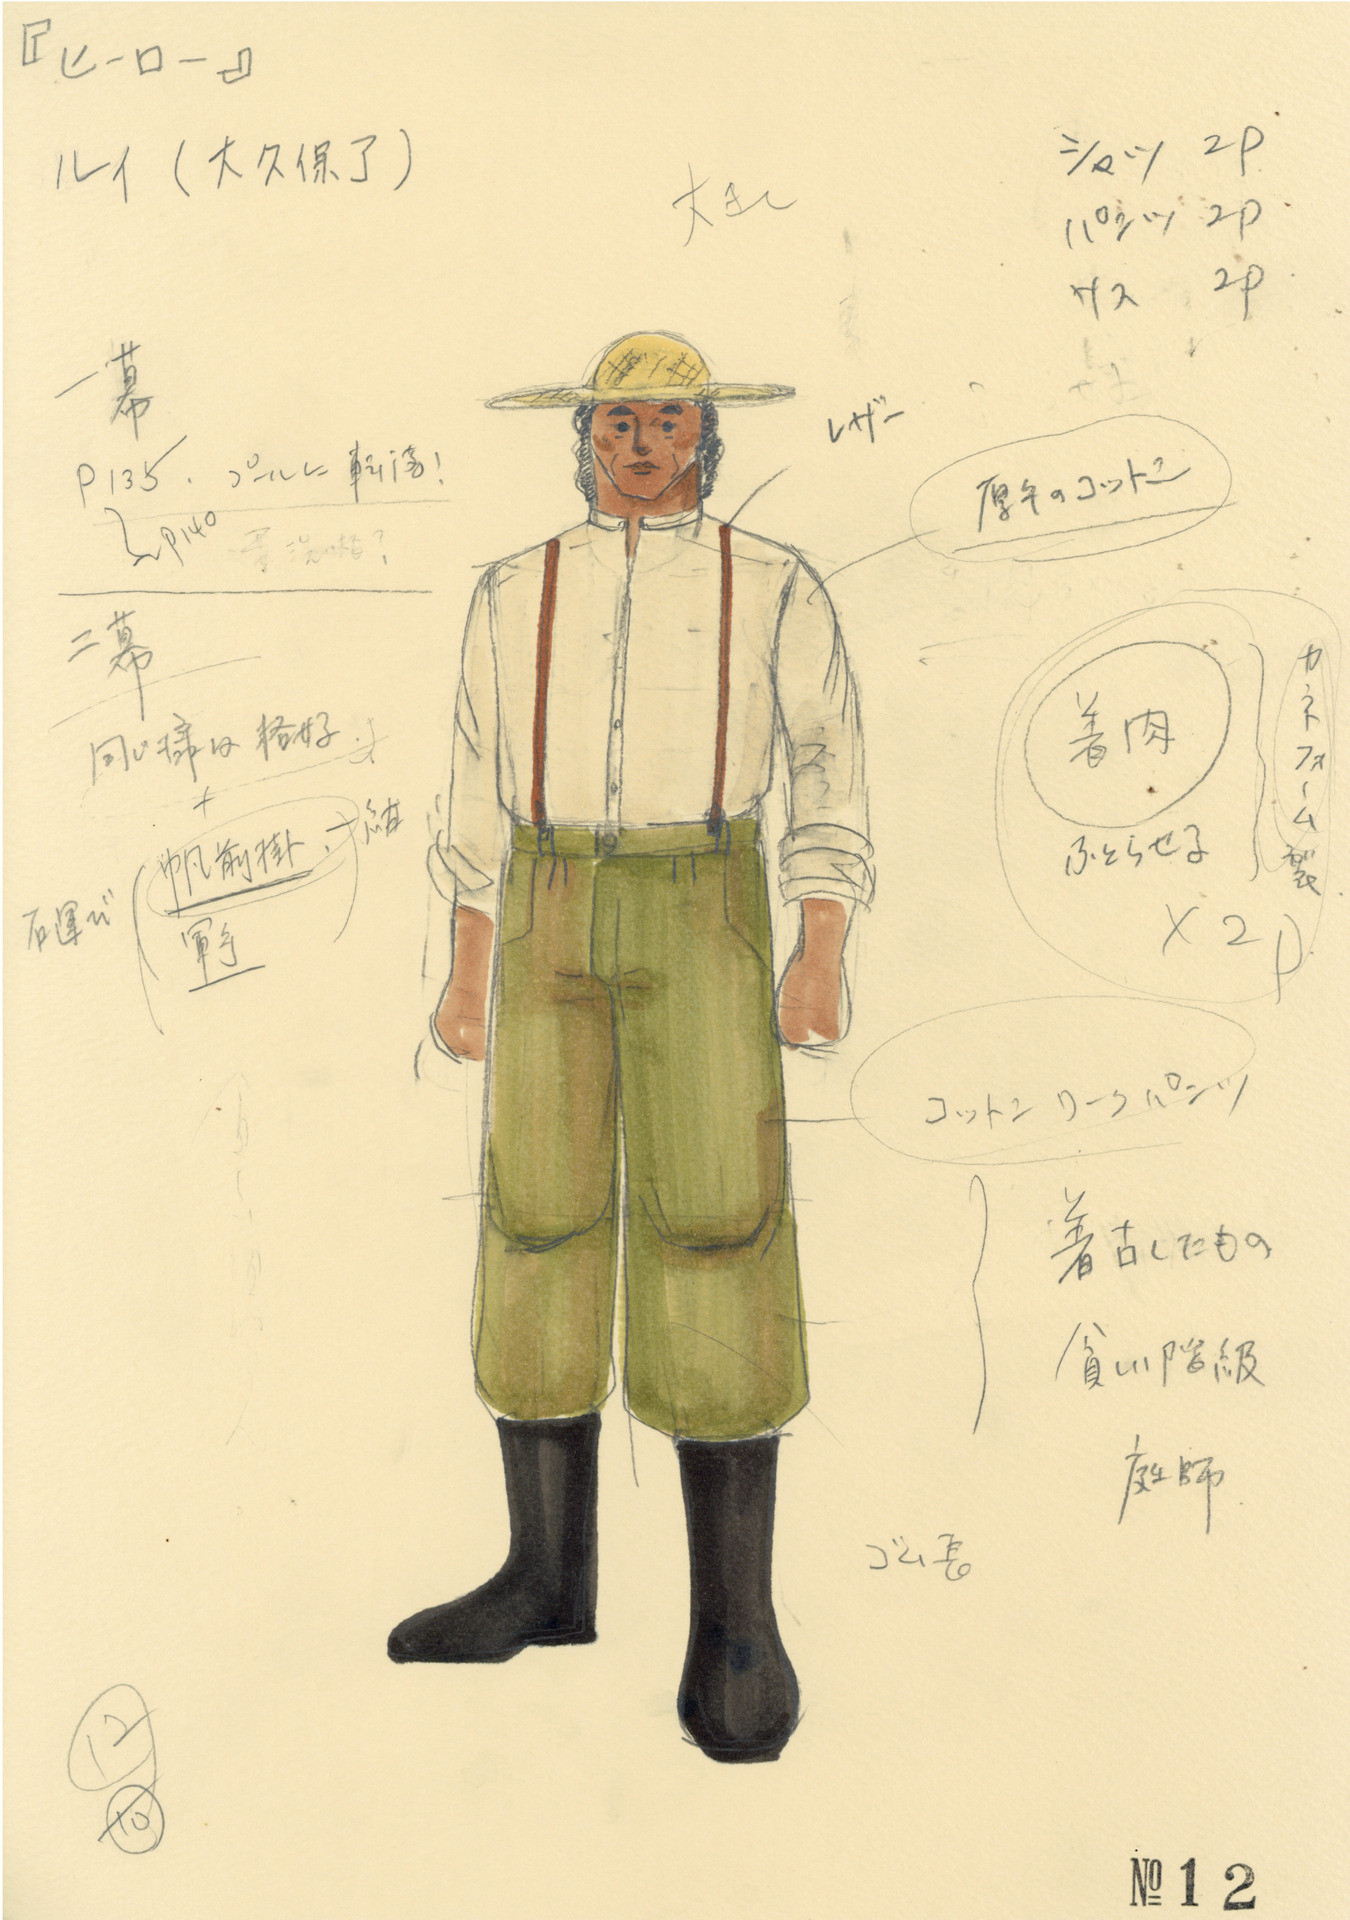 『ヒーロー』
ルイ(大久保了)
シャツ 2P
パンツ 2P
サス 2P
一幕
P135. プールに転落!
P140
二幕
同じ様な格好
+
帆前掛
軍手
石運び
紺
レザー
厚手のコットン
着肉
ふとらせる
×2P
カネフォーム製
コットンワークパンツ
着古したもの
貧しい階級
庭師
ゴム長
12
10
№12